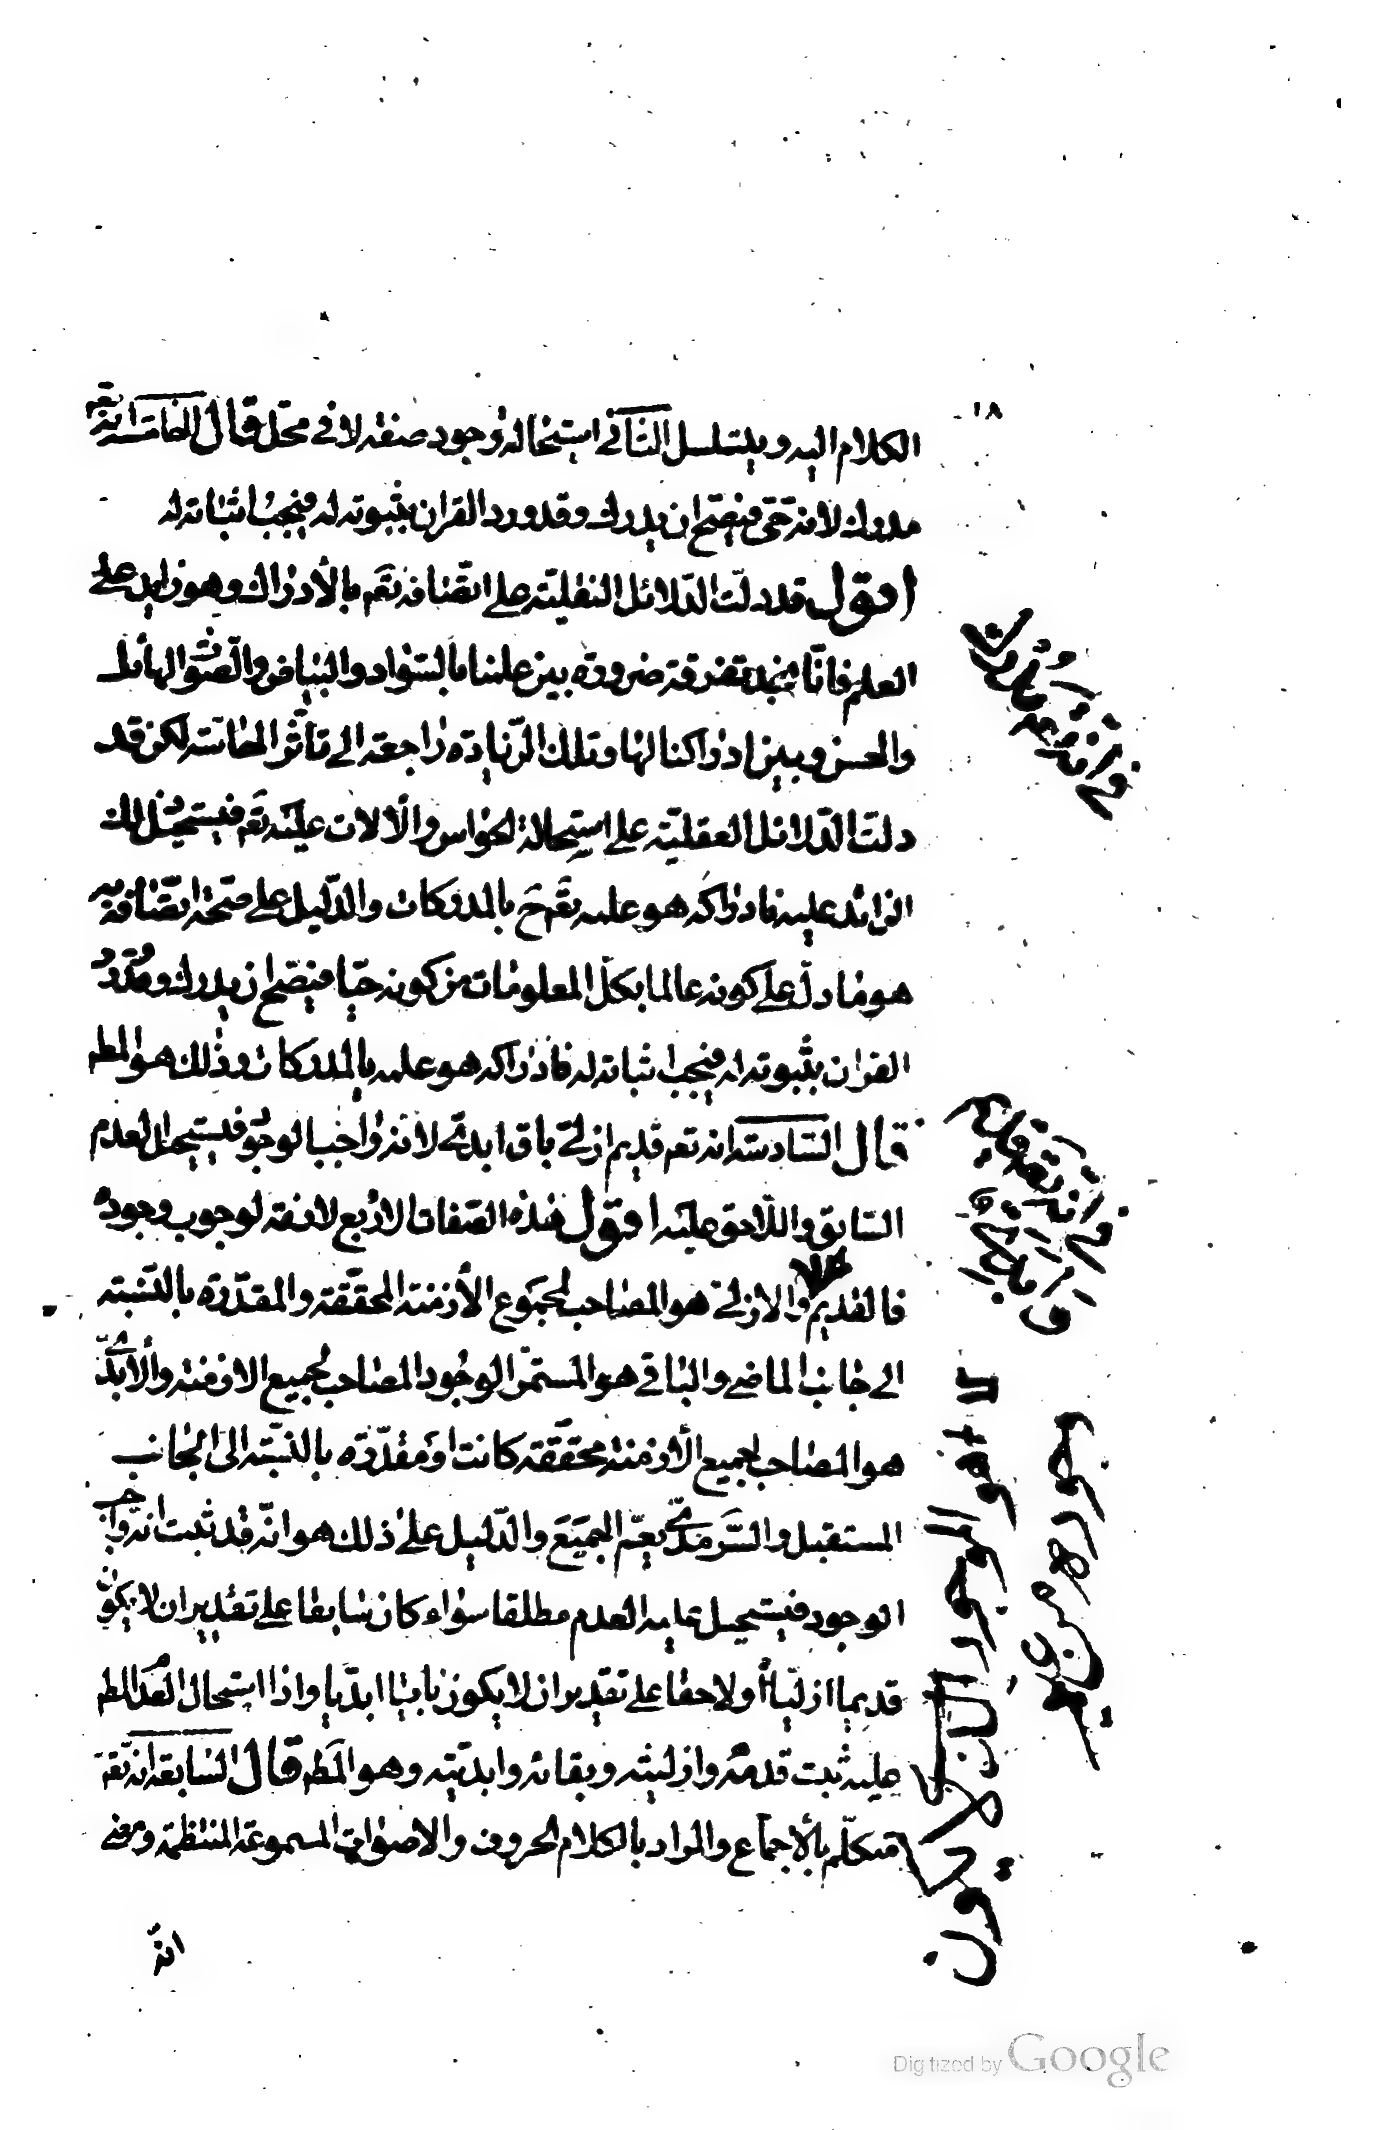 ١٨
الكلام اليه ويتسلسل الثانى استحالة وجود صفة لا فى محل قال الخامسة انه تعم
مدرك لانه حى فيصح ان يدرك وقد ورد القران بثبوته له فيجب اثباته له
اقول قد دلت الدلائل النقلية على اتصافه تعم بالادراك وهو زايد على
العلم فانا نجد تفرقة ضرورة بين علمنا بالسواد والبياض والصوت الهائل
والحسن وبين ادراكنا لها وتلك الزيادة راجعة الى تاثر الحاسة لكن قد
دلت الدلائل العقلية على استحالة الحواس والالات عليه تعم فيستحيل ذلك
الزائد عليه فادراكه هو علمه تعم ح بالمدركات والدليل على صحة اتصافه به
هو ما دل على كونه عالما بكل المعلومات من كونه حيا فيصح ان يدرك وقد ورد
القران بثبوته له فيجب اثباته له فادراكه هو علمه بالمدركات وذلك هو المط
قال السادسة انه تعم قديم ازلى باق ابدى لانه واجب الوجود فيستحيل العدم
السابق واللاحق عليه اقول هذه الصفات الاربع لازمة لوجوب وجوده
فالقديم والازلى هو المصاحب لمجموع الازمنة المحققة والمقدرة بالنسبة
الى جانب الماضى والباقى هو المستمر الوجود المصاحب لجميع الازمنة والابدى
هو المصاحب لجميع الازمنة محققة كانت او مقدرة بالنسبة الى الجانب
المستقبل والسرمدى يعم الجميع والدليل على ذلك هو انه قد ثبت انه واجب
الوجود فيستحيل عليه العدم مطلقا سواء كان سابقا على تقدير ان لا يكون
قديما ازليا او لاحقا على تقدير ان لا يكون باقيا ابديا واذا استحال العدم المط
عليه ثبت قدمه وازليته وبقائه وابديته وهو المط قال السابعة انه تعم
متكلم بالاجماع والمراد بالكلام الحروف والاصوات المسموعة المنتظمة ومعنى
انه
فى انه تعم مدرك
فى انه تعم قديم
وازلى وباق
هو الموجود الذى لا يكون
وجوده من غيره
Digitized by Google